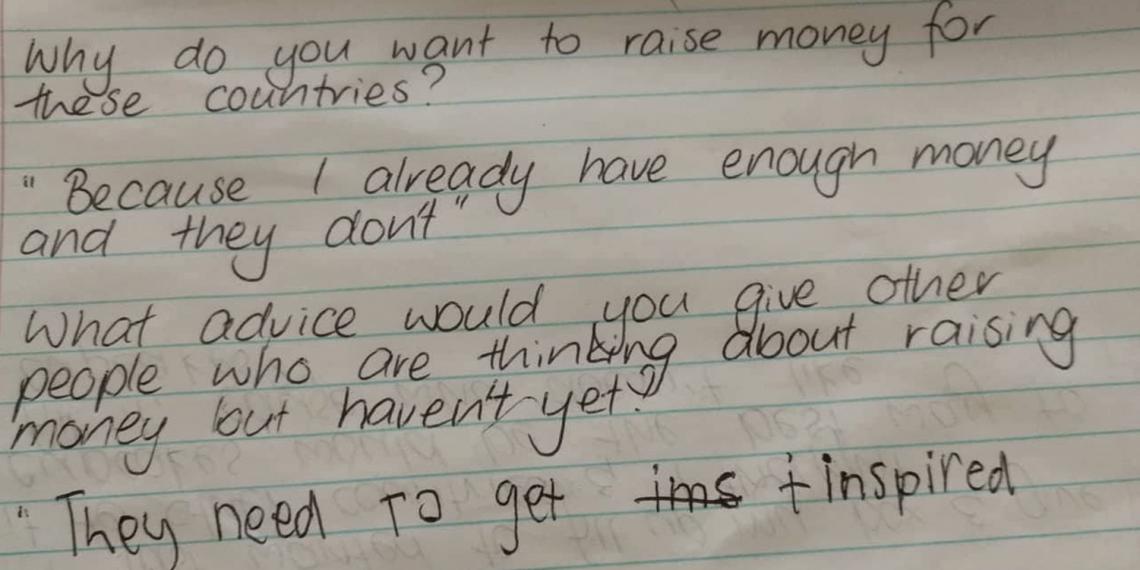 Why do you want to raise money for
these countries?
" Because I already have enough money
and they don't "
What advice would you give other
people who are thinking about raising
money but haven't yet?
" They need to get ims i inspired